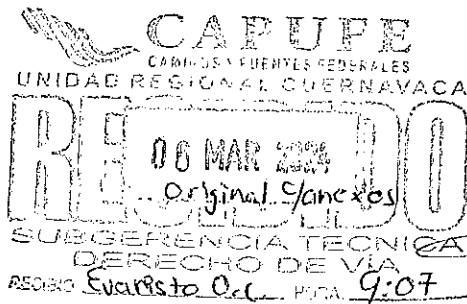 CAPUFE
CAMINOS Y PUENTES FEDERALES
UNIDAD REGIONAL CUERNAVACA
RECIBIDO
06 MAR 2024
Original c/anexos
SUBGERENCIA TECNICA
DERECHO DE VÍA
RECIBIO Evaristo HORA 9:07